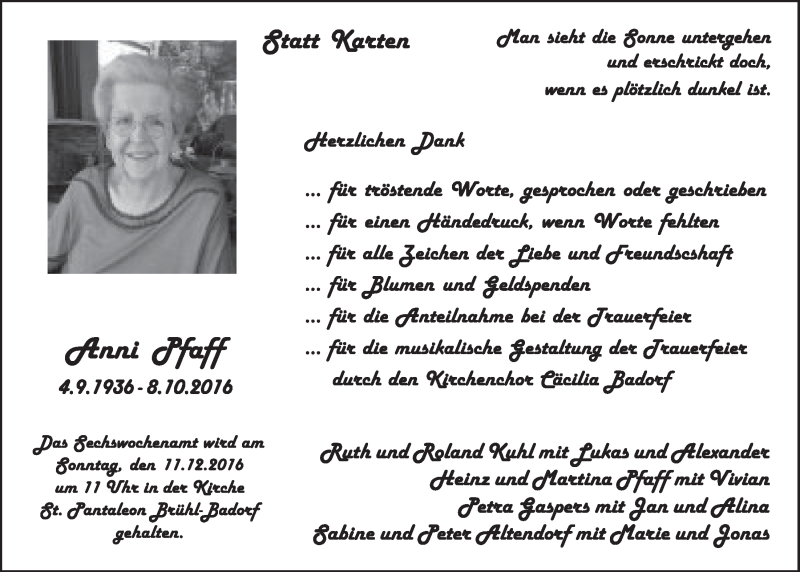 Statt Karten
Man sieht die Sonne untergehen
und erschrickt doch,
wenn es plötzlich dunkel ist.
Herzlichen Dank
... für tröstende Worte, gesprochen oder geschrieben
... für einen Händedruck, wenn Worte fehlten
... für alle Zeichen der Liebe und Freundscshaft
... für Blumen und Geldspenden
... für die Anteilnahme bei der Trauerfeier
... für die musikalische Gestaltung der Trauerfeier
durch den Kirchenchor Cäcilia Badorf
Anni Pfaff
4.9.1936 - 8.10.2016
Das Sechswochenamt wird am
Sonntag, den 11.12.2016
um 11 Uhr in der Kirche
St. Pantaleon Brühl-Badorf
gehalten.
Ruth und Roland Kuhl mit Lukas und Alexander
Heinz und Martina Pfaff mit Vivian
Petra Gaspers mit Jan und Alina
Sabine und Peter Altendorf mit Marie und Jonas